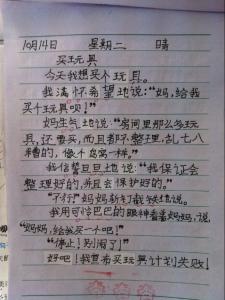 10月14日 星期二 晴
买玩具
今天我想买个玩具。
我满怀希望地说：“妈，给我
买个玩具呗！”
妈生气地说：“房间里那么多玩
具，还要买，而且都不整理，乱七八
糟的，像个鸟窝一样。”
我信誓旦旦地说：“我保证会
整理好的，并且会保护好的。”
“不行”妈妈斩钉截铁地说。
我用可怜巴巴的眼神看着妈妈，说，
“妈妈，给我买一个吧！”
“停止！别闹了！”
好吧！我宣布买玩具计划失败！